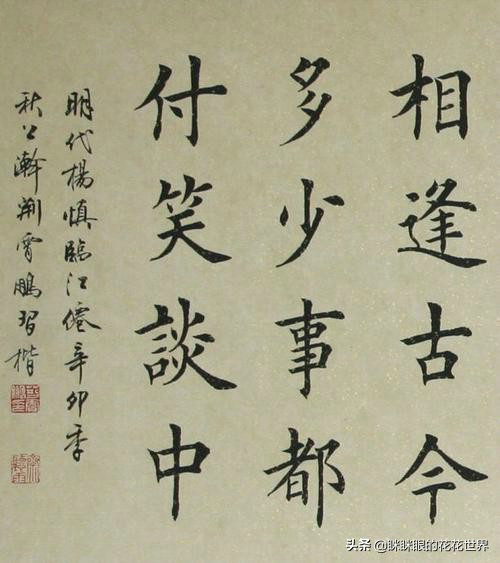 相逢古今
多少事都
付笑談中
明代楊慎臨江僊辛卯季
秋公荆霄鵬習楷
头条 @眯眯眼的花花世界